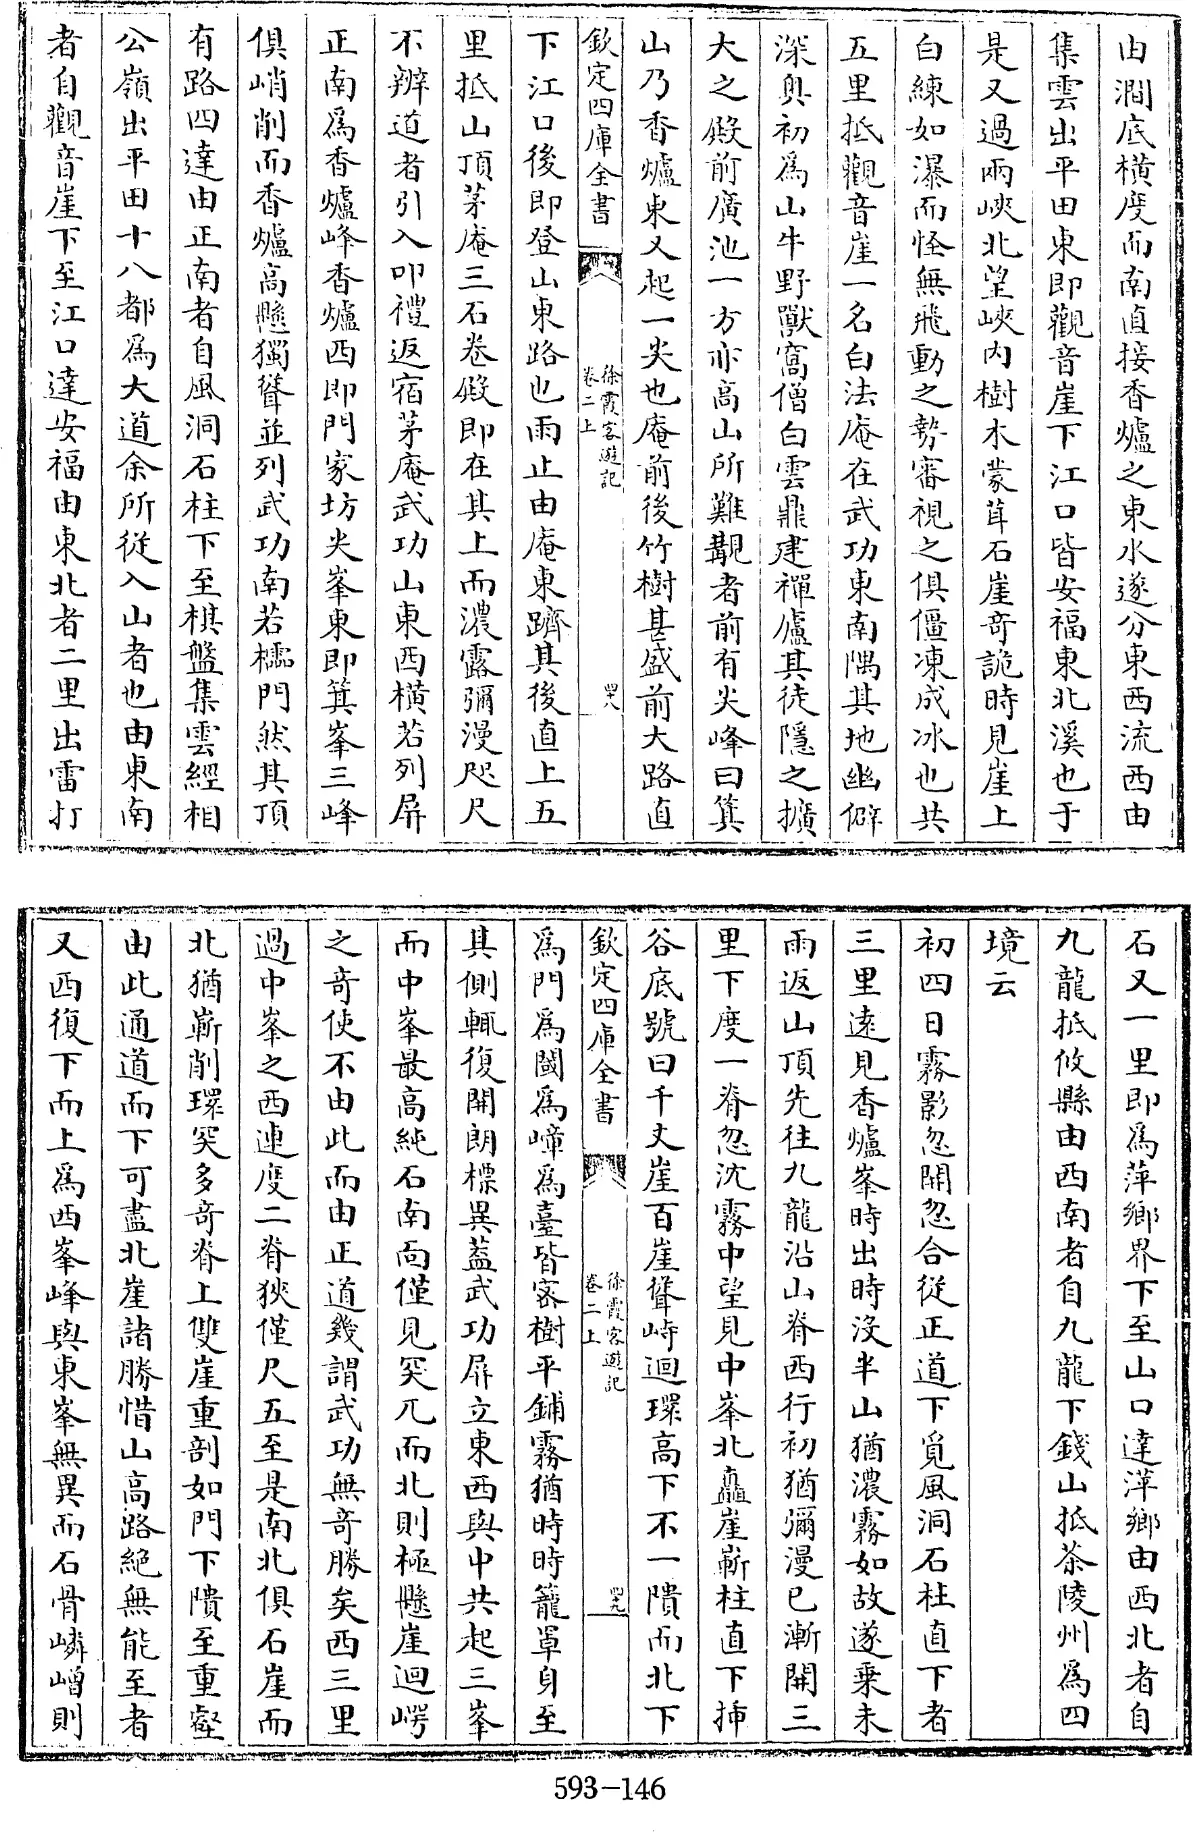 由澗底横度而南直接香爐之東水遂分東西流西由
集雲出平田東即觀音崖下江口皆安福東北溪也于
是又過兩峽北望峽内樹木蒙茸石崖奇詭時見崖上
白練如瀑而怪無飛動之勢審視之俱僵凍成冰也共
五里抵觀音崖一名白法庵在武功東南隅其地幽僻
深奥初為山牛野獸窩僧白雲鼎建禪廬其徒隱之擴
大之殿前廣池一方亦高山所難覯者前有尖峰曰箕
山乃香爐東又起一尖也庵前後竹樹甚盛前大路直
欽定四庫全書
徐霞客遊記
卷二上
四八
下江口後即登山東路也雨止由庵東躋其後直上五
里抵山頂茅庵三石卷殿即在其上而濃霧彌漫咫尺
不辨道者引入叩禮返宿茅庵武功山東西横若列屏
正南為香爐峰香爐西即門家坊尖峯東即箕峯三峰
俱峭削而香爐高懸獨聳並列武功南若櫺門然其頂
有路四達由正南者自風洞石柱下至棋盤集雲經相
公嶺出平田十八都為大道余所從入山者也由東南
者自觀音崖下至江口達安福由東北者二里出雷打
石又一里即為萍鄉界下至山口達萍鄉由西北者自
九龍抵攸縣由西南者自九龍下錢山抵茶陵州為四
境云
初四日霧影忽開忽合從正道下覓風洞石柱直下者
三里遠見香爐峯時出時没半山猶濃霧如故遂乘未
雨返山頂先往九龍沿山脊西行初猶彌漫已漸開三
里下度一脊忽沈霧中望見中峯北矗崖嶄柱直下揷
谷底號曰千丈崖百崖聳峙迴環高下不一隤而北下
欽定四庫全書
徐霞客遊記
卷二上
四九
為門為闕為嶂為臺皆密樹平鋪霧猶時時籠罩身至
其側輒復開朗標異蓋武功屏立東西與中共起三峯
而中峯最高純石南面僅見突兀而北則極懸崖迴崿
之奇使不由此而由正道幾謂武功無奇勝矣西三里
過中峯之西連度二脊狹僅尺五至是南北俱石崖而
北猶嶄削環突多奇脊上雙崖重剖如門下隤至重壑
由此通道而下可盡北崖諸勝惜山高路絶無能至者
又西復下而上為西峯峰與東峯無異而石骨嶙嶒則
593-146